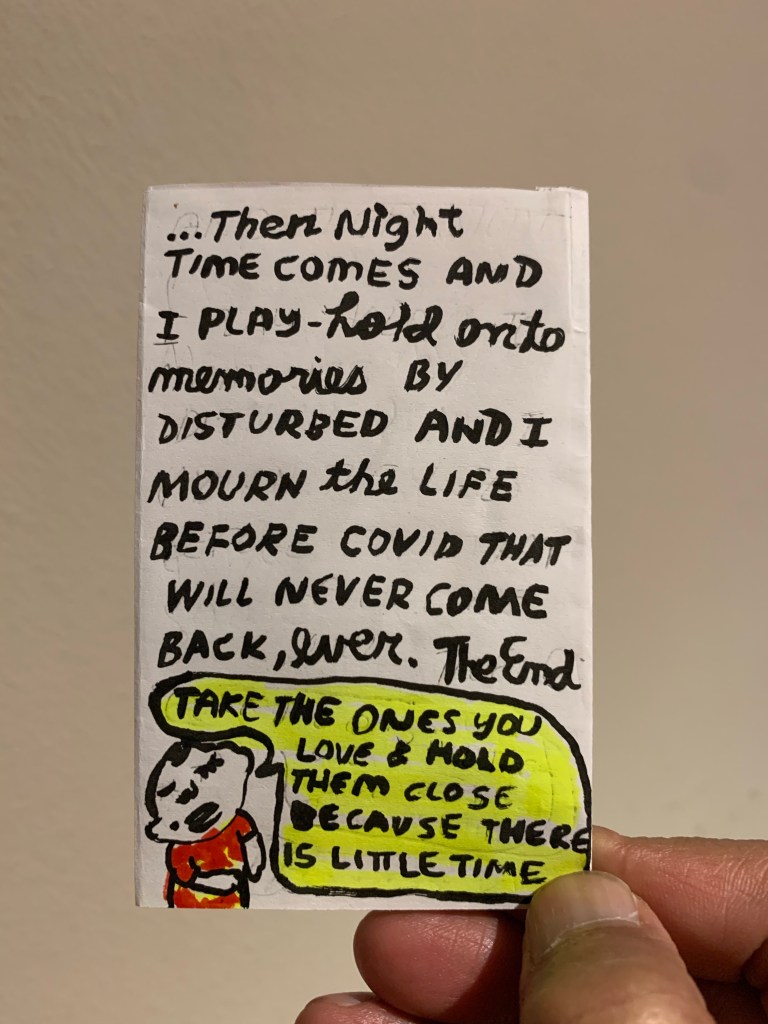 ...Then Night
TIME COMES AND
I PLAY-hold onto
memories BY
DISTURBED AND I
MOURN the LIFE
BEFORE COVID THAT
WILL NEVER COME
BACK, ever. The End
TAKE THE ONES YOU
LOVE & HOLD
THEM CLOSE
BECAUSE THERE
IS LITTLE TIME